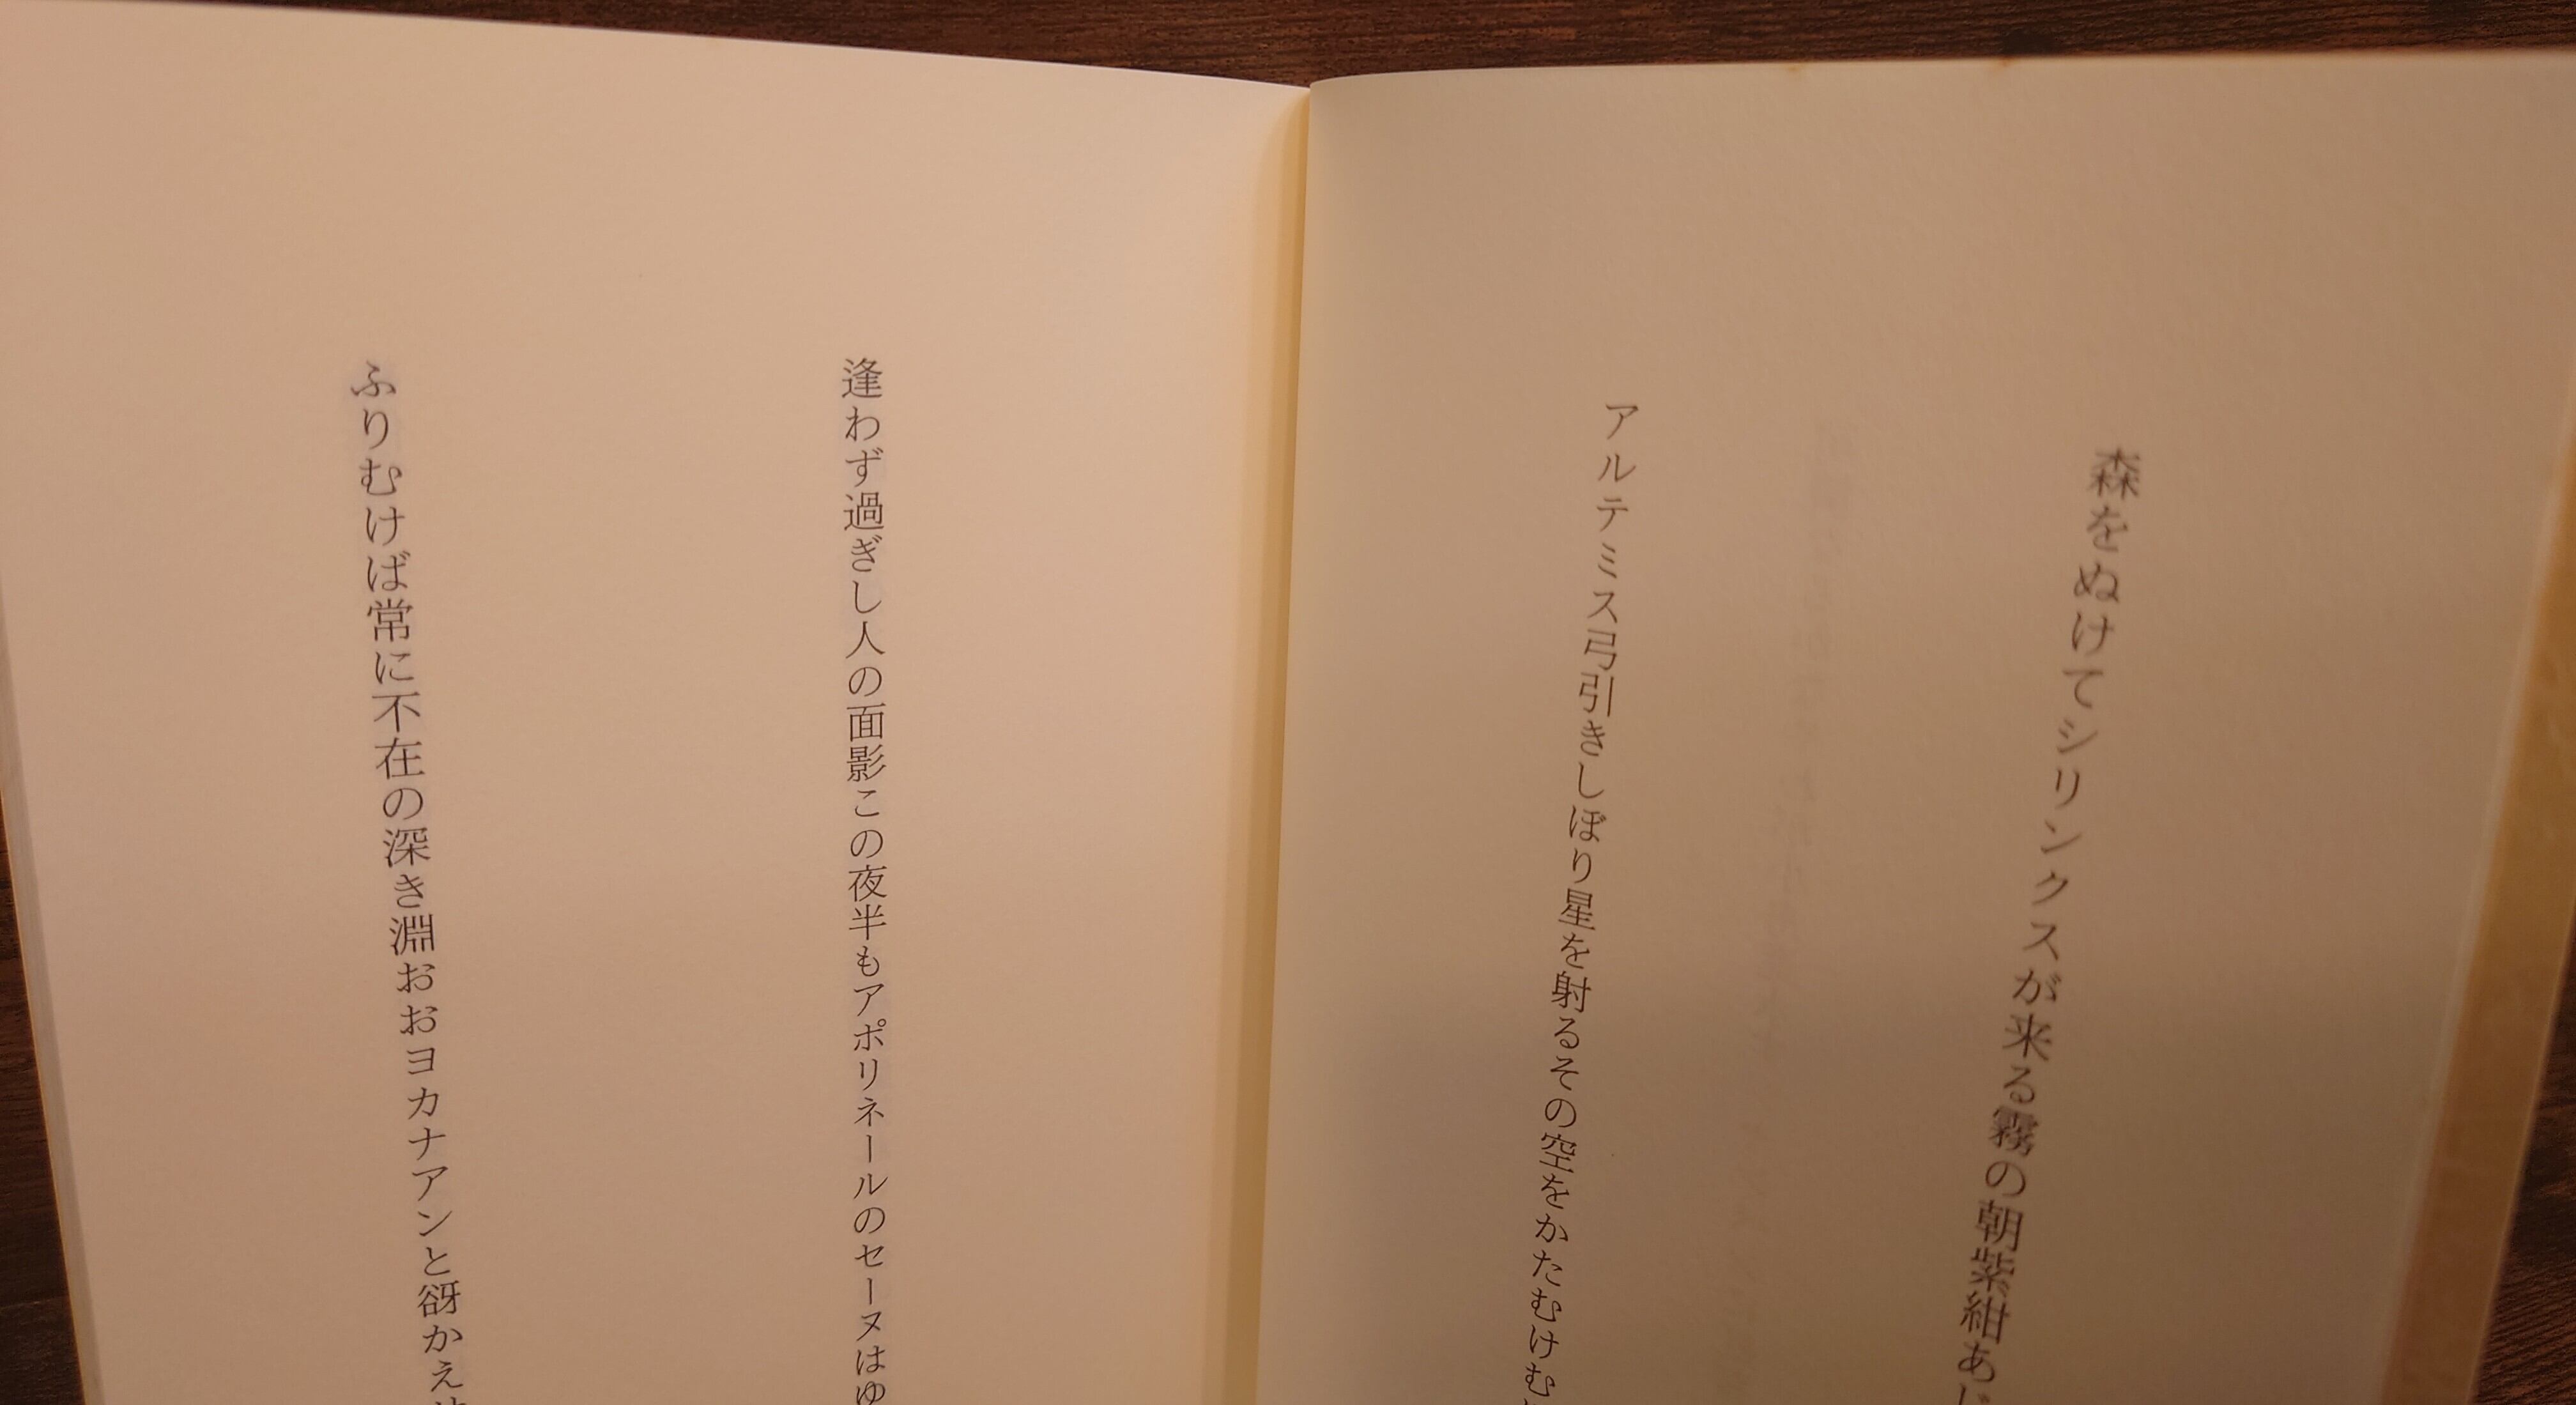 森をぬけてシリンクスが来る霧の朝紫紺あじ
アルテミス弓引きしぼり星を射るその空をかたむけむ
逢わず過ぎし人の面影この夜半もアポリネールのセーヌはゆ
ふりむけば常に不在の深き淵おおヨカナアンと谺かえ